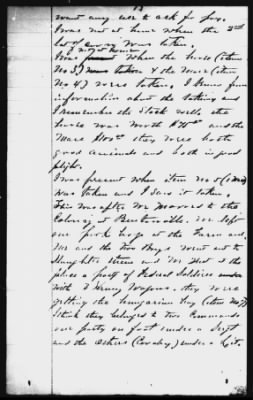 want any use to ask for pay.
I was not at home when the 2nd
lot of was taken.
I was not at home when the horse (item
No 3) & the Mare (item
No 4) were taken. I know from
information about the taking and
I remember the Stock well the
horse was worth $ and the
Mare $ they were both
good animals and both in good
plight.
I was present when item No 5 (
was taken and I saw it taken.
This was after we moved to the
Colony at We left
our Hogs at the Farm and
Me and the two Boys went out to
Slaughter them and We Met at the
place a party of Federal Soldiers
with 2 Army Wagons. they were
getting the hungarian hay (item No 7)
I think they belonged to two Commands
one party on foot under a Sergt
and the Others (Cavalry) under a Lt.